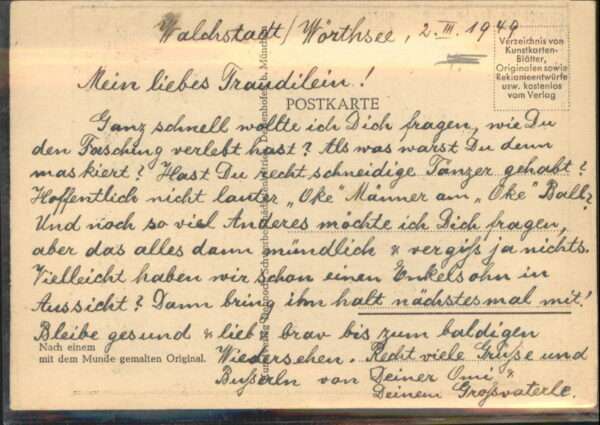 Walchstadt/Wörthsee, 2. III. 1949
Verzeichnis von
Kunstkarten-
Blätter,
Originalen sowie
Reklameentwürfe
usw. kostenlos
vom Verlag
Mein liebes Traudilein!
POSTKARTE
Ganz schnell wollte ich Dich fragen, wie Du
den Fasching verlebt hast? Als was warst Du denn
maskiert? Hast Du recht schneidige Tänzer gehabt?
Hoffentlich nicht lauter „Oke“ Männer am „Oke“ Ball?
Und noch so viel Anderes möchte ich Dich fragen,
aber das alles dann mündlich & vergiß ja nichts.
Vielleicht haben wir schon einen Enkelsohn in
Aussicht? Dann bring ihn halt nächstesmal mit!
Bleibe gesund & lieb & brav bis zum baldigen
Nach einem
mit dem Munde gemalten Original.
Wiedersehen. Recht viele Grüße und
Bußerln von Deiner Omi &
Deinem Großvaterle.